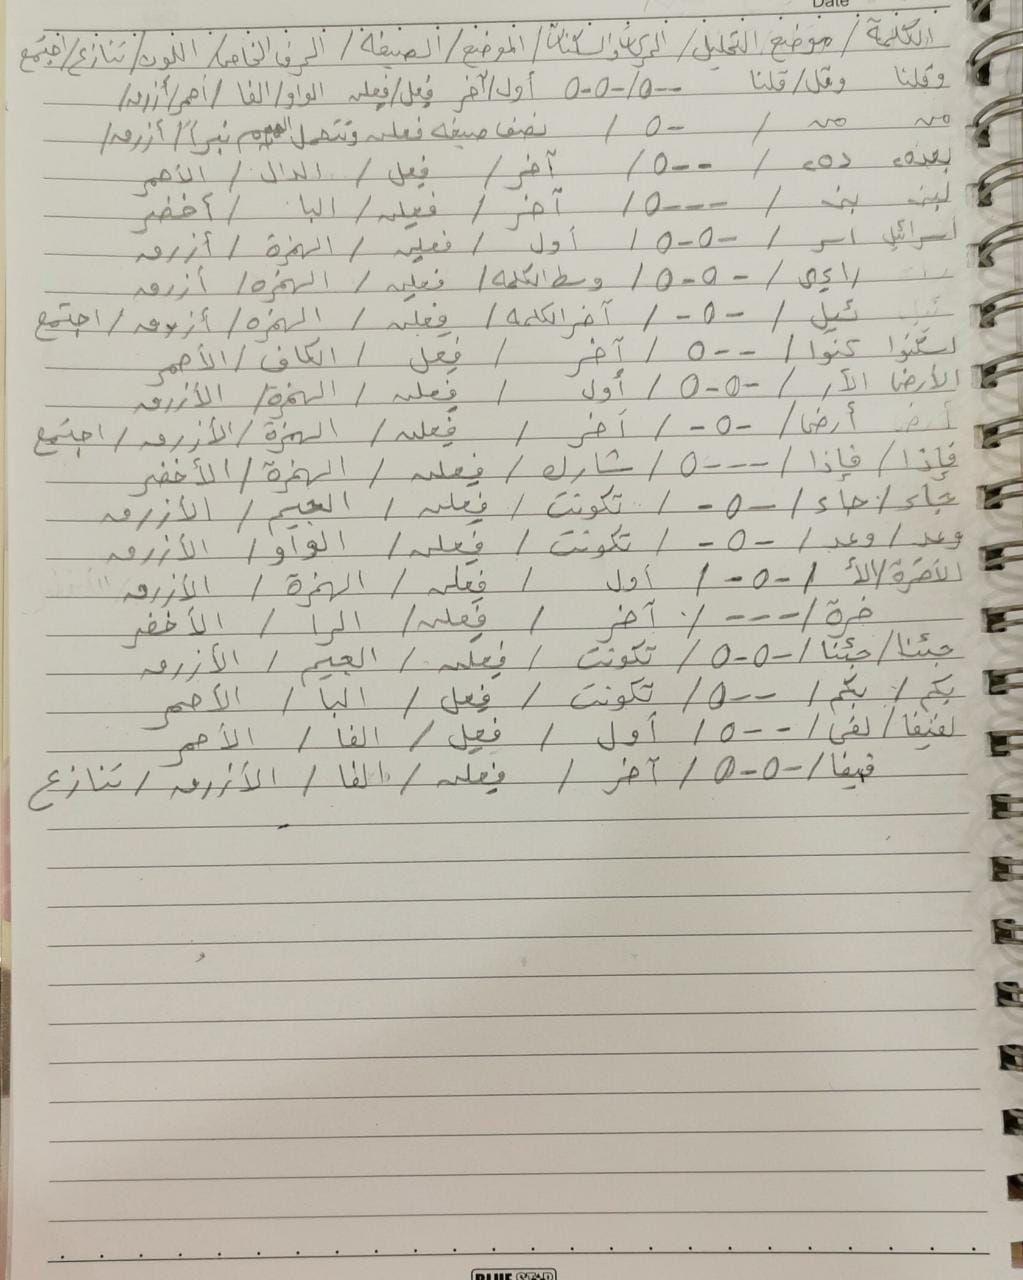 Date
الكلمة / موضع التحليل / الحركات والسكنات / الموضع / الصيغة / الحرف الخاص / اللون / تنازع / اجتمع
وقلنا وقل/قلنا --o/-o-o أول/آخر فعل/فعلن الواو/الفا / أحمر/أزرق/
من من / -o / نصف صيغة فعلن وتتحمل نبراً / أزرق/
بعده دهى / --o / آخر / فعل / الدال / الأحمر
لبنى بنى / ---o / آخر / فعلن / البا / أخضر
إسرائيل اسر / -o-o / أول / فعلن / الهمزة / أزرق
رائي / -o-o / وسط الكلمة / فعلن / الهمزة / أزرق
ئيل / -o- / آخر الكلمة / فعلن / الهمزة / أزرق / اجتمع
اسكنوا كنوا / --o / آخر / فعل / الكاف / الأحمر
الأرض الأر / -o-o / أول / فعلن / الهمزة / الأزرق
أرض أرض / -o- / آخر / فعلن / الهمزة / الأزرق / اجتمع
فإذا / فإذا / ---o / شارك / فعلن / الهمزة / الأخضر
جاء / جاء / -o- / تكونت / فعلن / الجيم / الأزرق
وعد / وعد / -o- / تكونت / فعلن / الواو / الأزرق
الآخرة/الأ / -o- / أول / فعلن / الهمزة / الأزرق
خرة / --- / آخر / فعلن / الرا / الأخضر
جئنا / جئنا / -o-o / تكونت / فعلن / الجيم / الأزرق
بكم / بكم / --o / تكونت / فعل / البا / الأحمر
لفيفا / لفى / --o / أول / فعل / الفا / الأحمر
فيفا / -o-o / آخر / فعلن / الفا / الأزرق / تنازع
BLUE STAR